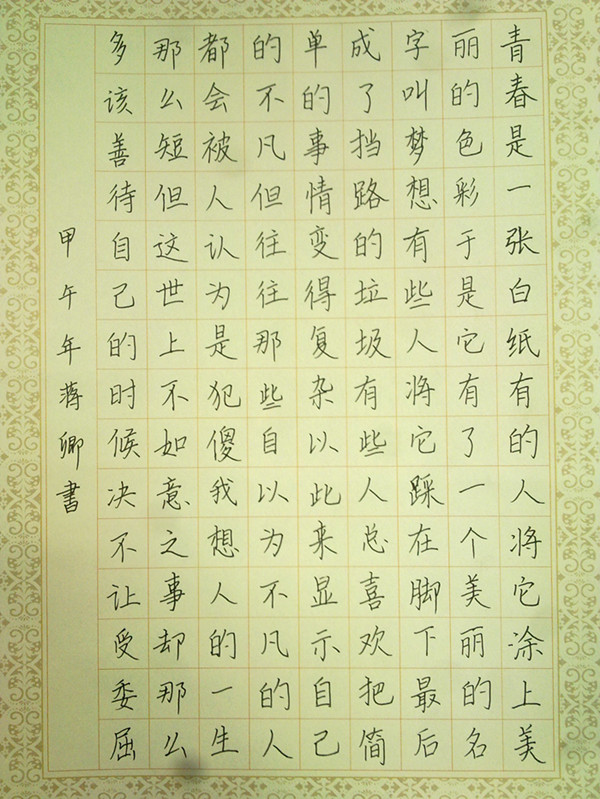 青春是一张白纸有的人将它涂上美
丽的色彩于是它有了一个美丽的名
字叫梦想有些人将它踩在脚下最后
成了挡路的垃圾有些人总喜欢把简
单的事情变得复杂以此来显示自己
的不凡但往往那些自以为不凡的人
都会被人认为是犯傻我想人的一生
那么短但这世上不如意之事却那么
多该善待自己的时候决不让受委屈
甲午年蒋卿書